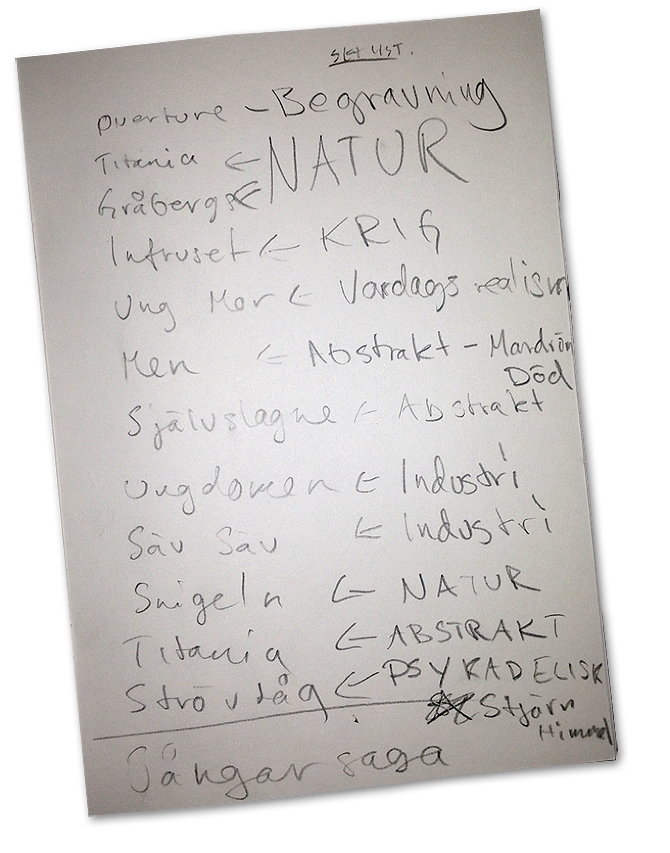 SET LIST.
Ouverture - Begravning
Titania ← NATUR
Gråbergs ←
Infruset ← KRIG
Ung Mor ← Vardags realism
Men ← Abstrakt - Mardröm
Död
Självslagne ← Abstrakt
Ungdomen ← Industri
Säv Säv ← Industri
Snigeln ← NATUR
Titania ← ABSTRAKT
Strövtåg ← PSYKADELISK
Stjärn
Himmel
Sångarsaga